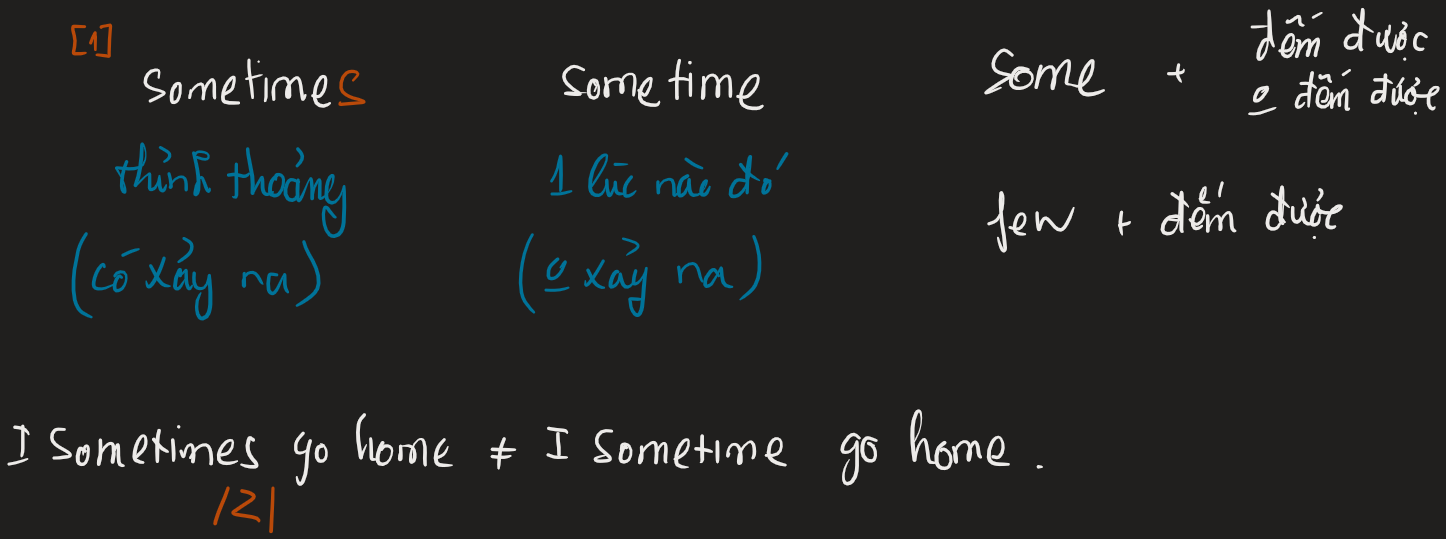 [1]
Sometimes
thỉnh thoảng
(có xảy ra)
Sometime
1 lúc nào đó
(o xảy ra)
Some + đếm được
o đếm được
few + đếm được
I Sometimes go home ≠ I Sometime go home.
/z/